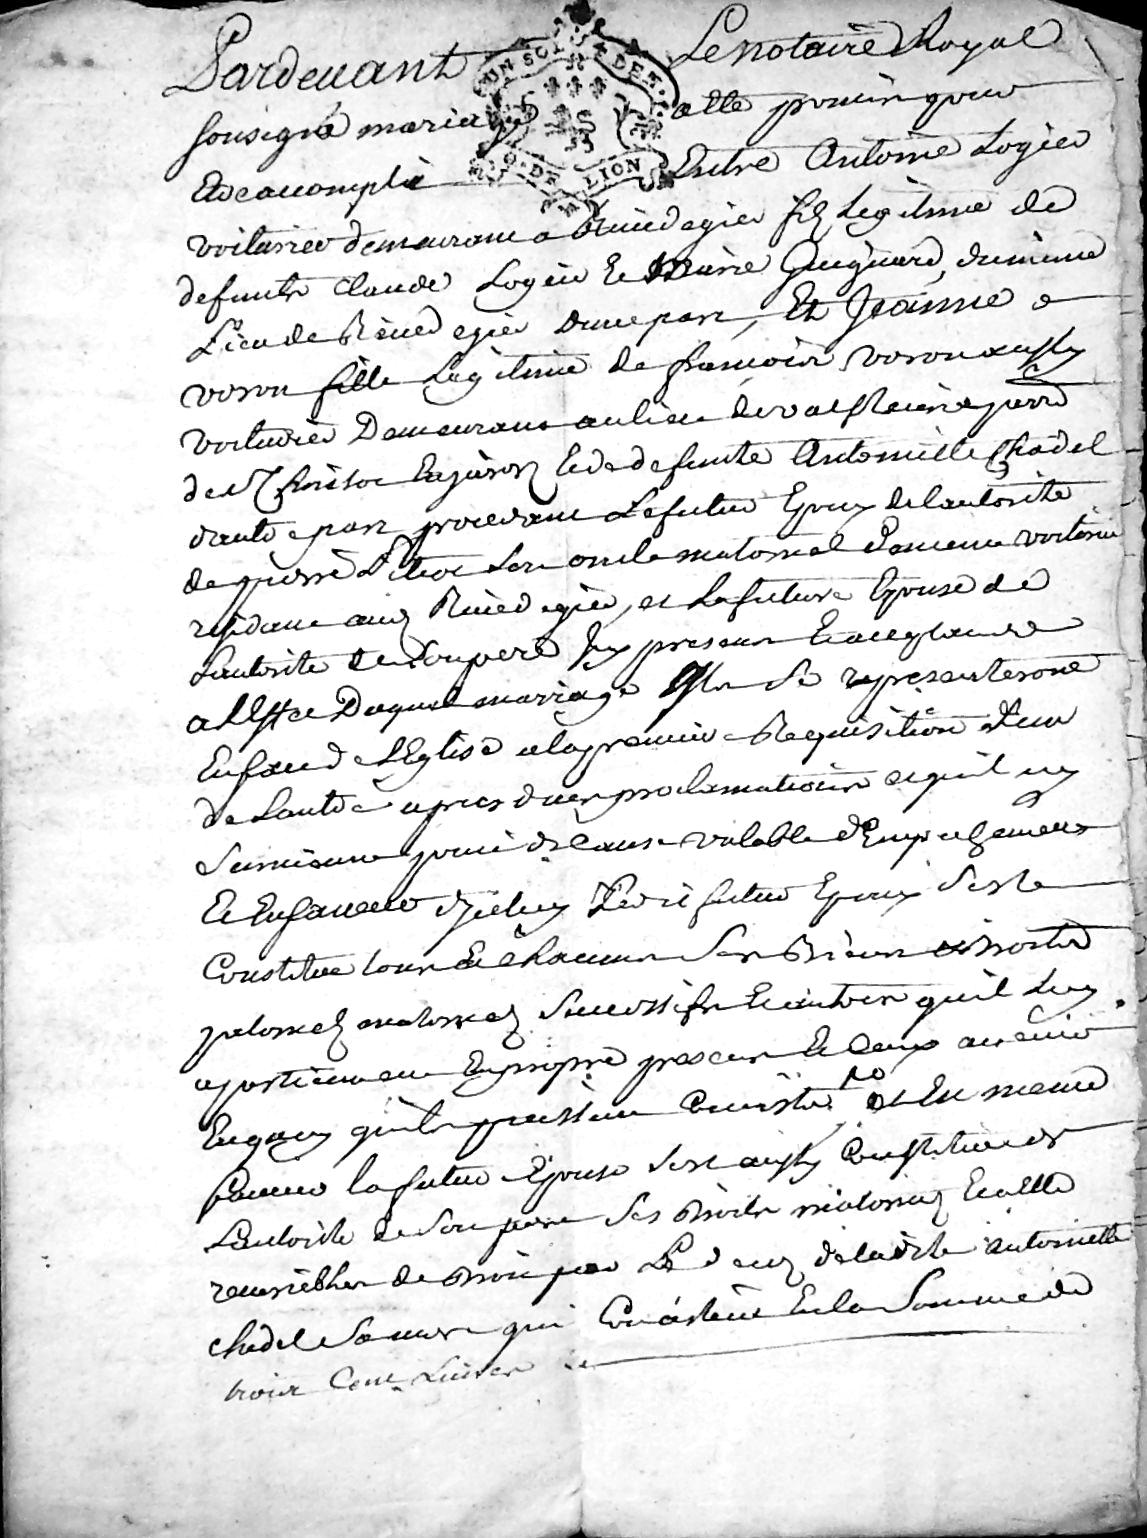 Pardevant Le notaire Royal
UN SOL 4 DEN.
G. DE LION
sousigné mariage a esté promis pour
Estre accomplie Entre Antoine Logier
voiturier demeurant a fils legitime de
defunts Claude Logier Et Marie du mesme
Lieu de dune part, Et Jeanne
voron fille Legitime de francois voron aussy
voiturier Demeurant au lieu de
de St Et de defunte Antoinette Chadel
dautre part procedant Le futur Epoux de lautorité
de pierre son oncle maternel voiturier
residant aud et La future Epouse de
Lautorité de son pere icy present Et acceptant
a Leffet Duquel mariage Ils se representeront
En face de LEglise a la premiere Requisition Lun
de Lautre apres deues proclamations et quil ny
survienne point de cause valable dEmpechement
Et En faveur dycelluy Ledit futur Epoux sest
Constitué tous Et Chacuns ses Biens Droits
paternels maternels successifs Et autres quil Luy
apartiennent En propre presens Et Ceux avenir
En quoy quils puissent Consister Et En meme
faveur la future Epouse sest aussy Constituée de
Lautorité de son pere ses Droits maternels Et a Elle
par Le deces de ladite antoinette
chadel sa mere qui Consistent En la Somme de
trois Cent Livres